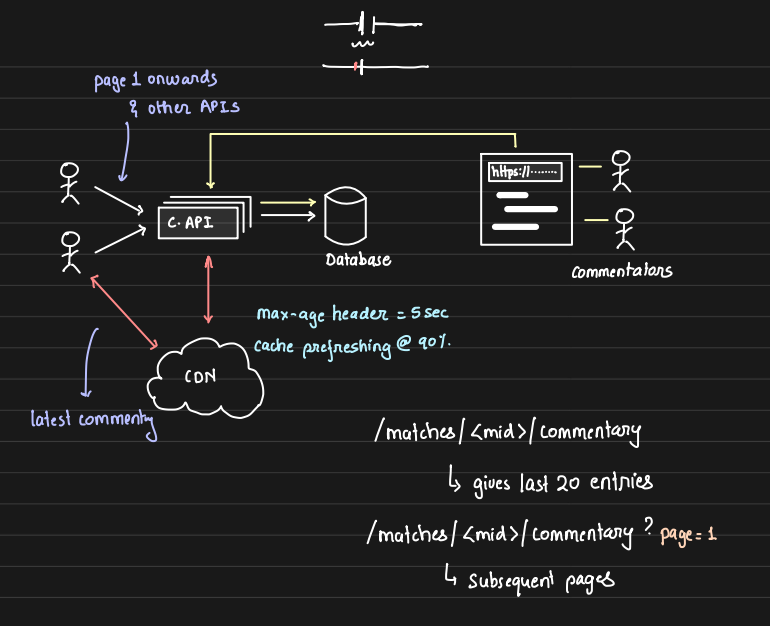 page 1 onwards
& other APIs
https://........
C. API
Database
commentators
max-age header = 5 sec
cache prefreshing @ 90%.
CDN
latest commentry
/matches/<mid>/commentary
↳ gives last 20 entries
/matches/<mid>/commentary ? page= 1
↳ subsequent pages